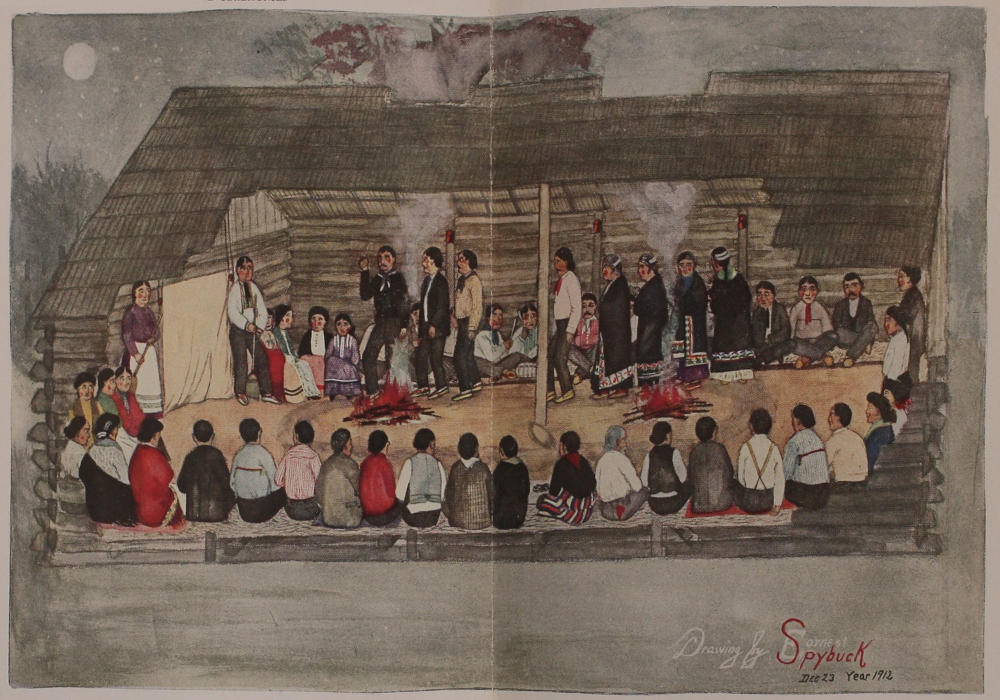 Drawing by Earnest
Spybuck
Dec 23 Year 1912